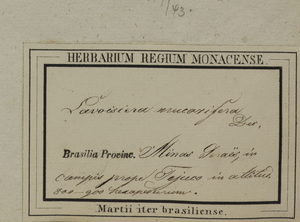 /43.
HERBARIUM REGIUM MONACENSE.
Lavoisiera mucorifera
Dec.
Brasilia Provinc. Minas Geraës, in
campis prope Tejuco in altitud.
800-900 hexapodarum.
Martii iter brasiliense.